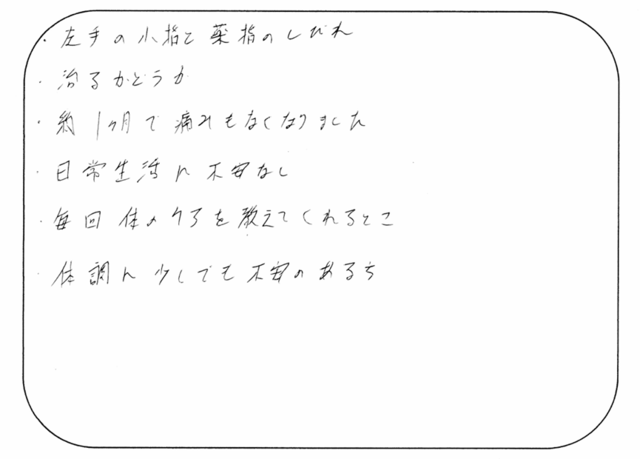 ・左手の小指と薬指のしびれ
・治るかどうか
・約1ヶ月で痛みもなくなりました
・日常生活に不安なし
・毎回体のケアを教えてくれるところ
・体調に少しでも不安のある方